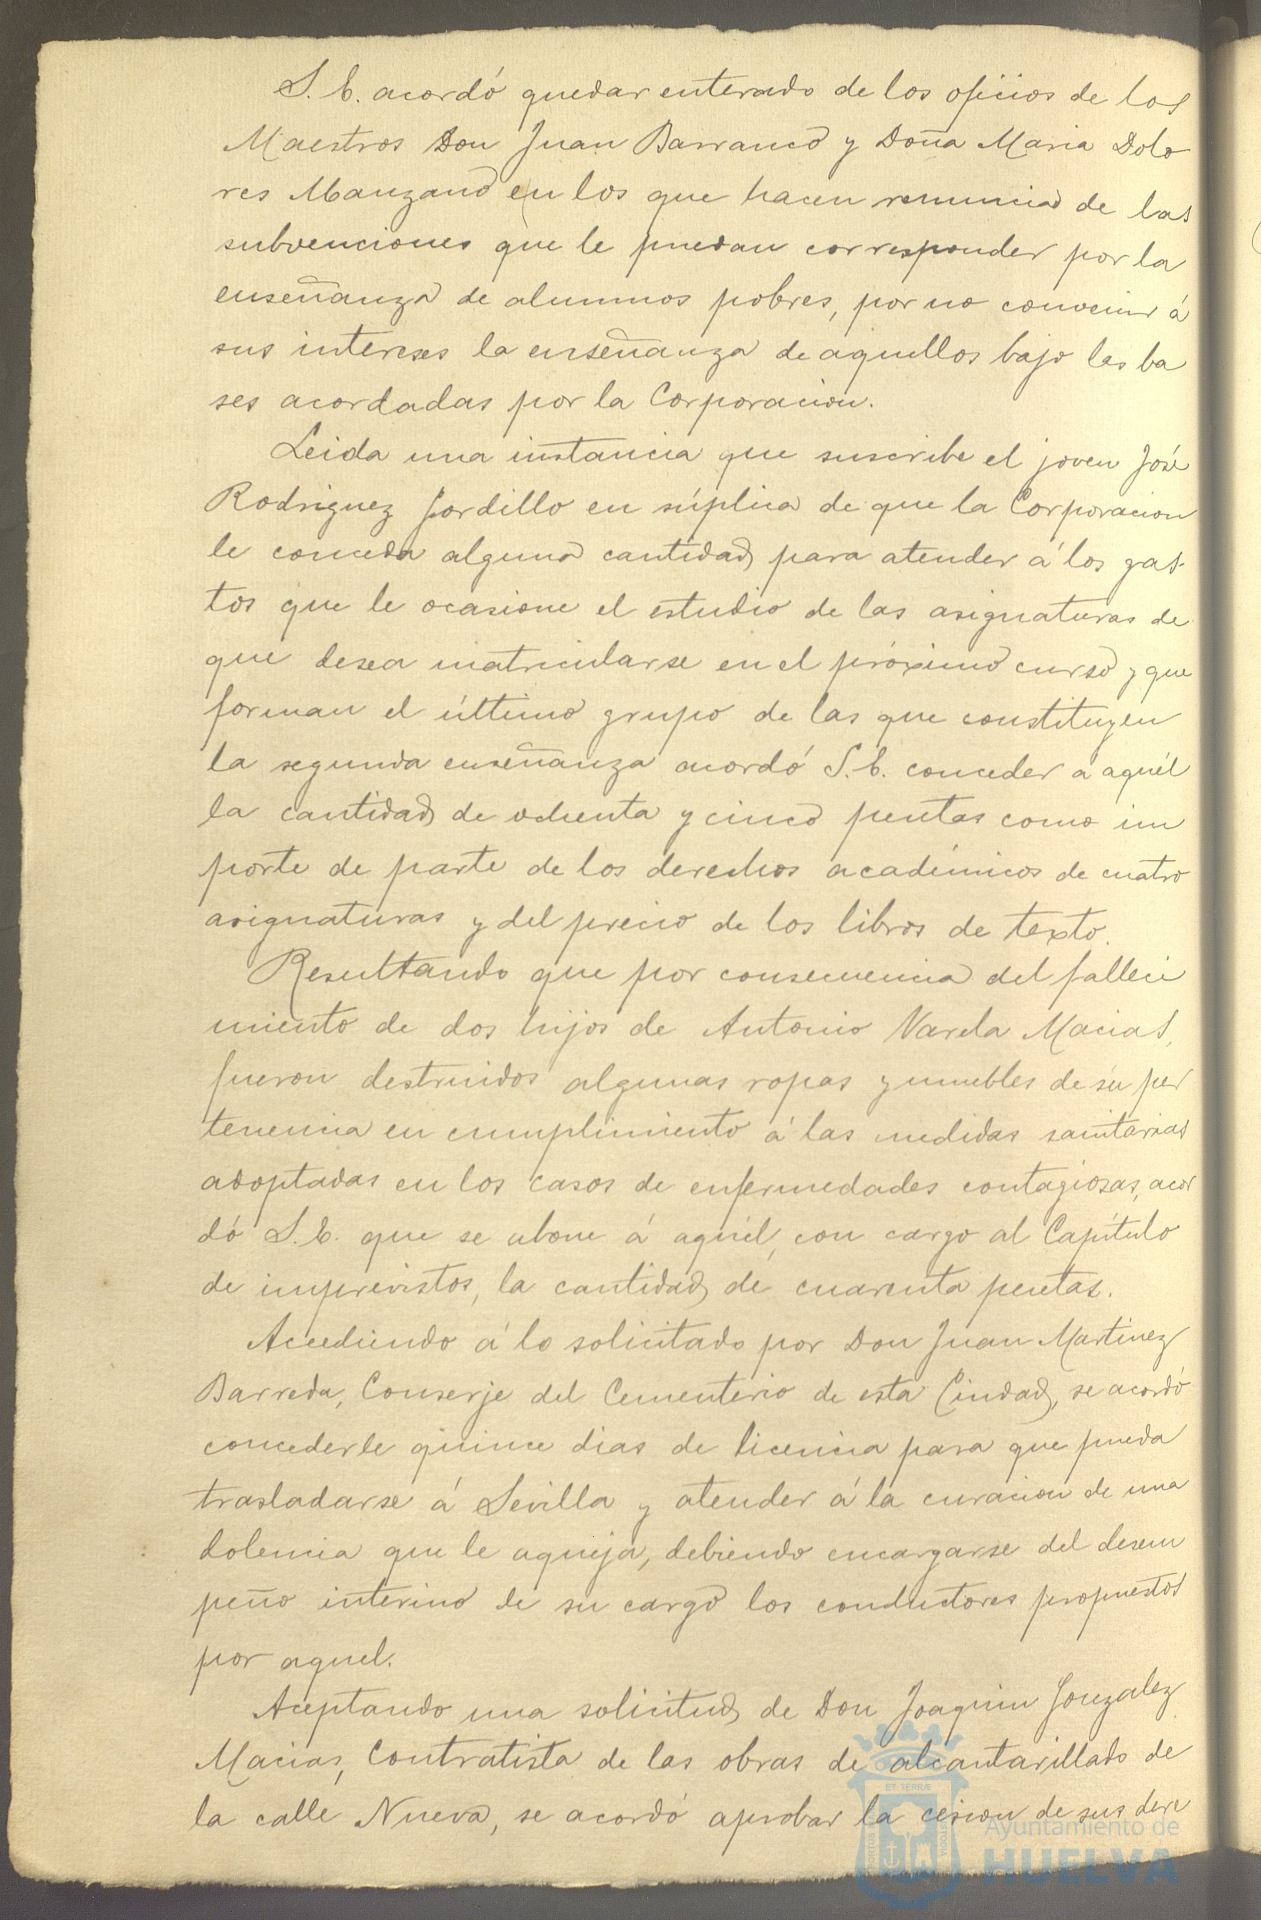 S. E. acordó quedar enterado de los oficios de los
Maestros Don Juan Barranco y Doña Maria Dolo
res Manzano en los que hacen renuncia de las
subvenciones que le puedan corresponder por la
enseñanza de alumnos pobres, por no convenir á
sus intereses la enseñanza de aquellos bajo las ba
ses acordadas por la Corporacion.
Leida una instancia que suscribe el joven José
Rodriguez Gordillo en súplica de que la Corporacion
le conceda alguna cantidad para atender á los gas-
tos que le ocasione el estudio de las asignaturas de
que desea matricularse en el próximo curso y que
forman el último grupo de las que constituyen
la segunda enseñanza acordó S. E. conceder a aquél
la cantidad de ochenta y cinco pesetas como im
porte de parte de los derechos académicos de cuatro
asignaturas y del precio de los libros de texto.
Resultando que por consecuencia del falleci
miento de dos hijos de Antonio Varela Macias,
fueron destruidos algunas ropas y muebles de su per
tenencia en cumplimiento á las medidas sanitarias
adoptadas en los casos de enfermedades contagiosas, acor
dó S. E. que se abone á aquél, con cargo al Capítulo
de imprevistos, la cantidad de cuarenta pesetas.
Accediendo á lo solicitado por Don Juan Martinez
Barreda, Conserje del Cementerio de esta Ciudad, se acordó
concederle quince dias de licencia para que pueda
trasladarse á Sevilla y atender á la curacion de una
dolencia que le aqueja, debiendo encargarse del desem
peño interino de su cargo los conductores propuestos
por aquel.
Aceptando una solicitud de Don Joaquin Gonzalez
Macias, Contratista de las obras de alcantarillado de
la calle Nueva, se acordó aprobar la cesion de sus dere
Ayuntamiento de
HUELVA